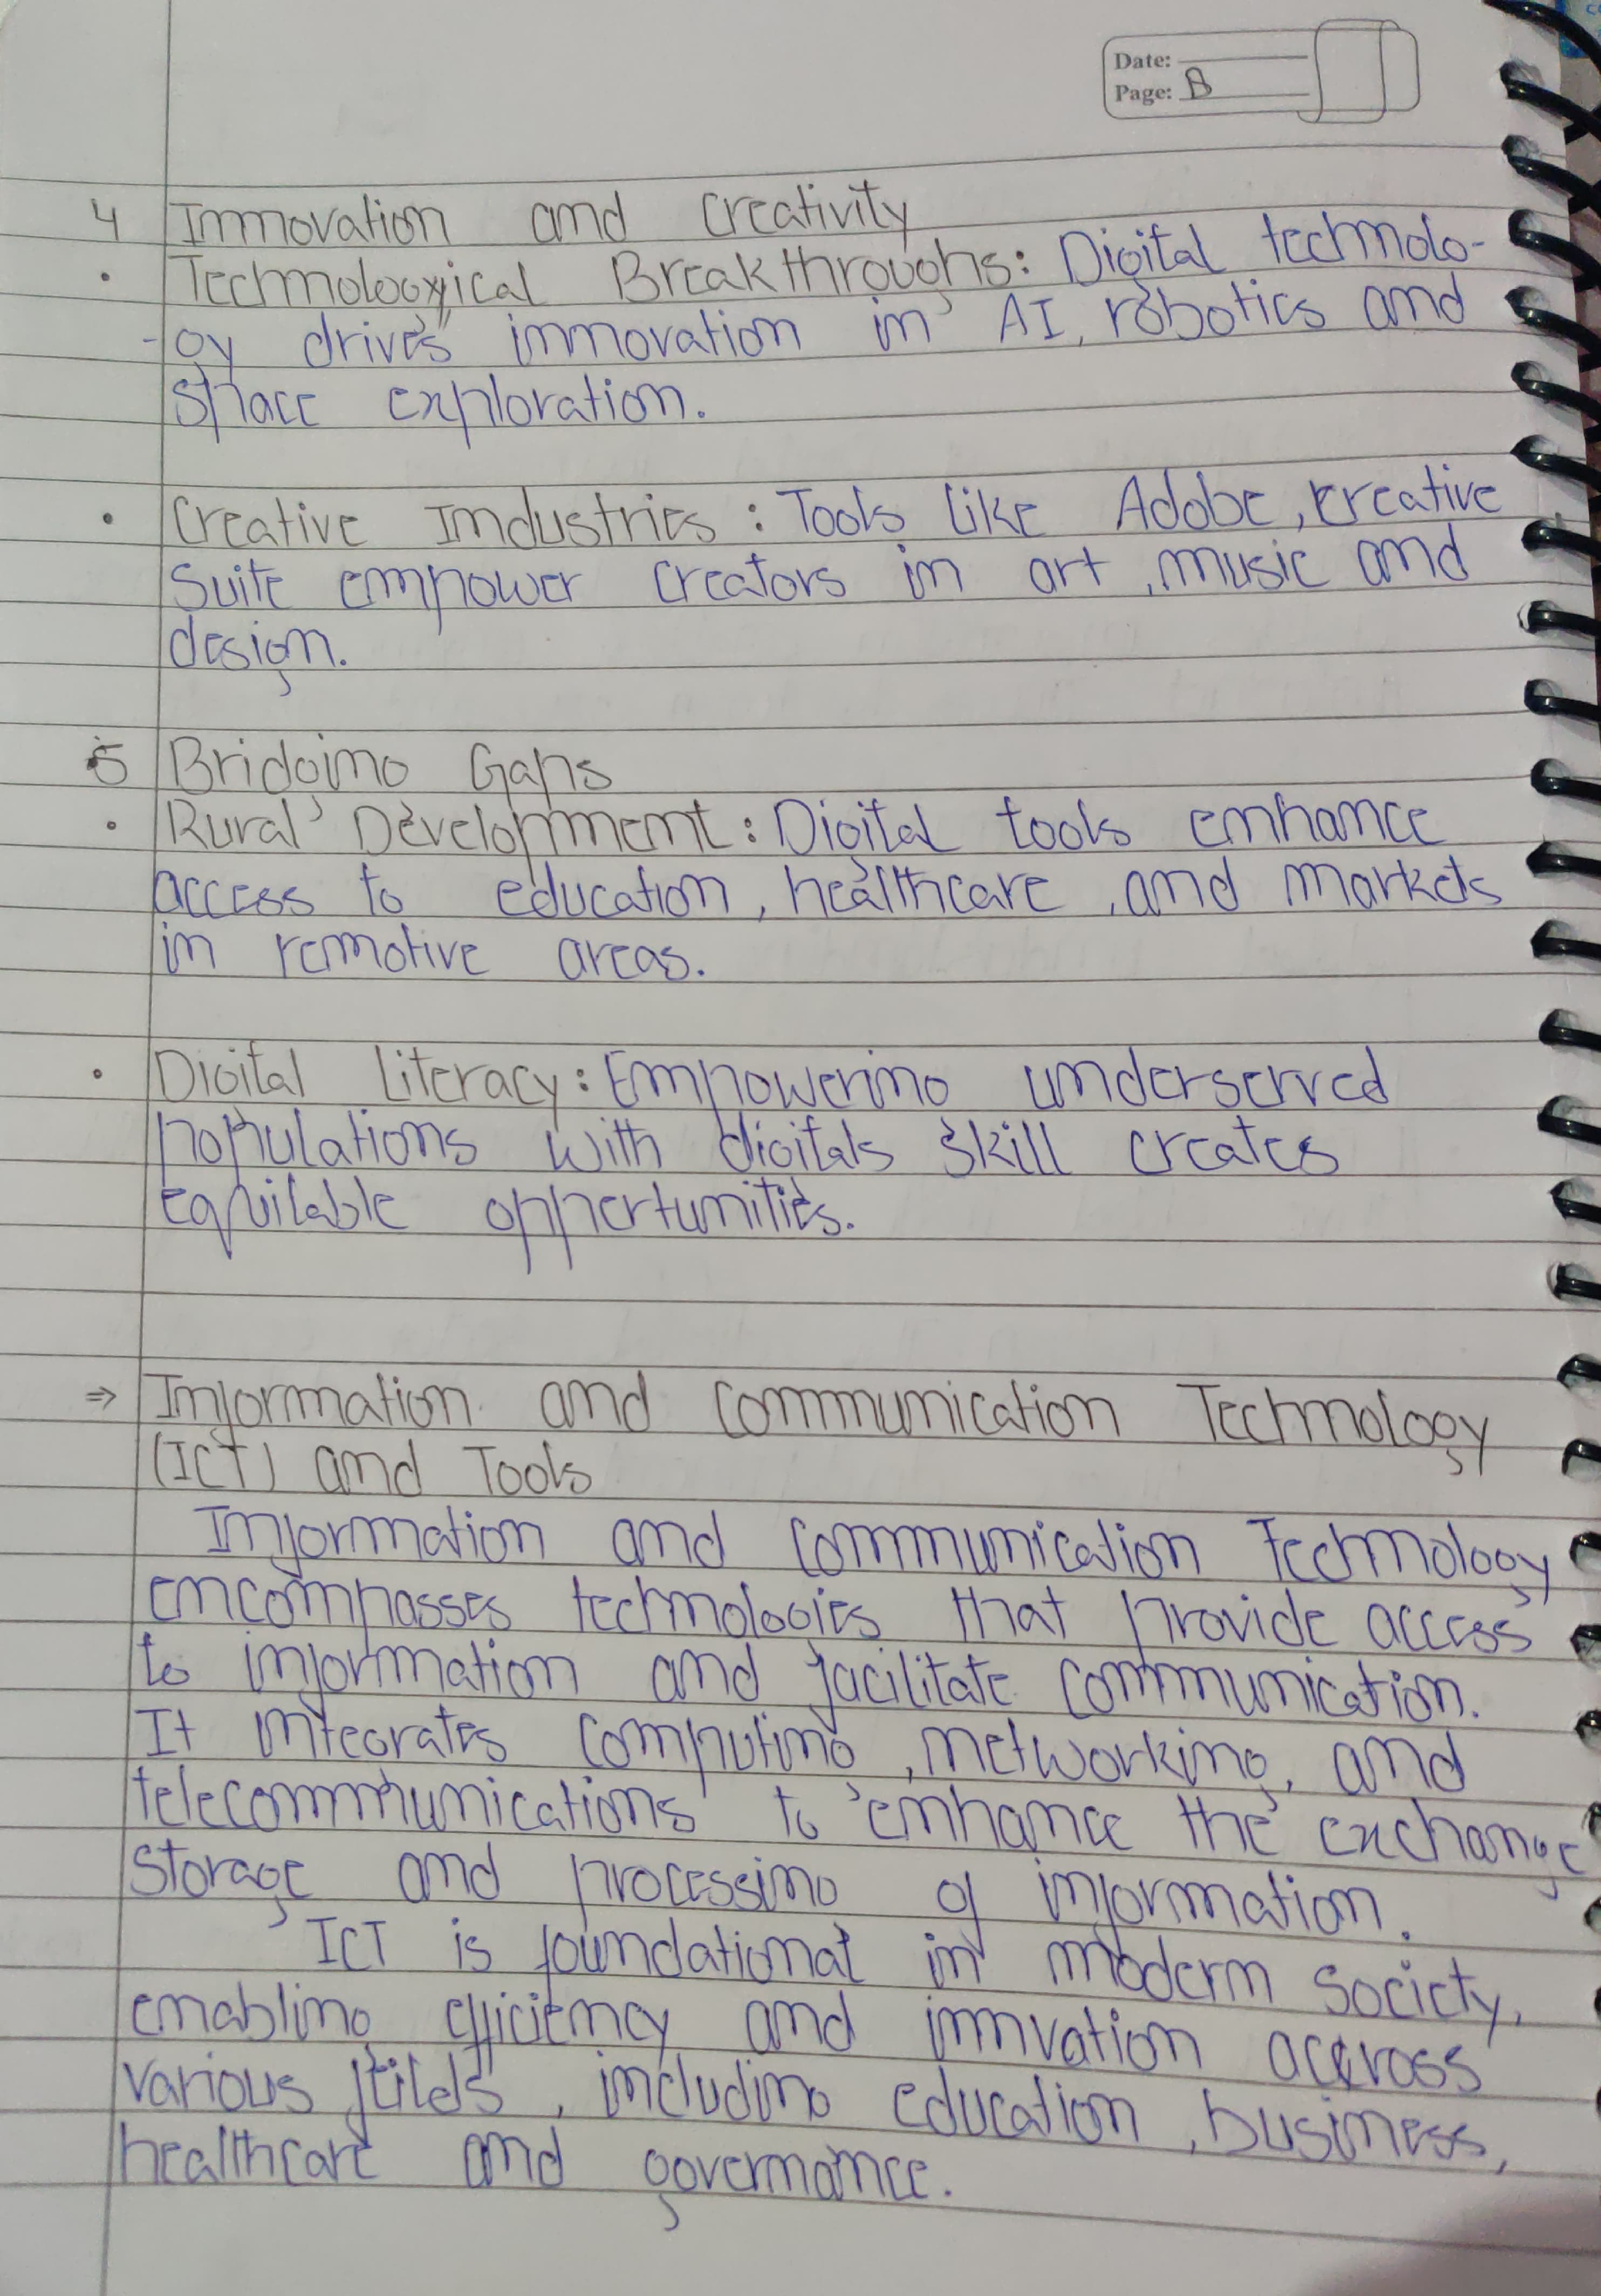 Date:
Page: B
4 Innovation and Creativity
• Technological Breakthroughs: Digital technolo-
-gy drives innovation in AI, robotics and
space exploration.
• Creative Industries : Tools like Adobe, creative
suite empower creators in art, music and
design.
5 Bridging Gaps
• Rural Development : Digital tools enhance
access to education, healthcare, and markets
in remotive areas.
• Digital Literacy : Empowering underserved
populations with digitals skill creates
equilable oppertunities.
⇒ Information and Communication Technology
(ICT) and Tools
Information and Communication Technology
encompasses technologies that provide access
to information and facilitate communication.
It integrates computing, networking, and
telecommunications to enhance the exchange
storage and processing of information.
ICT is foundational in modern society,
enabling efficiency and innvation accross
various feilds, including education, business,
healthcare and governance.